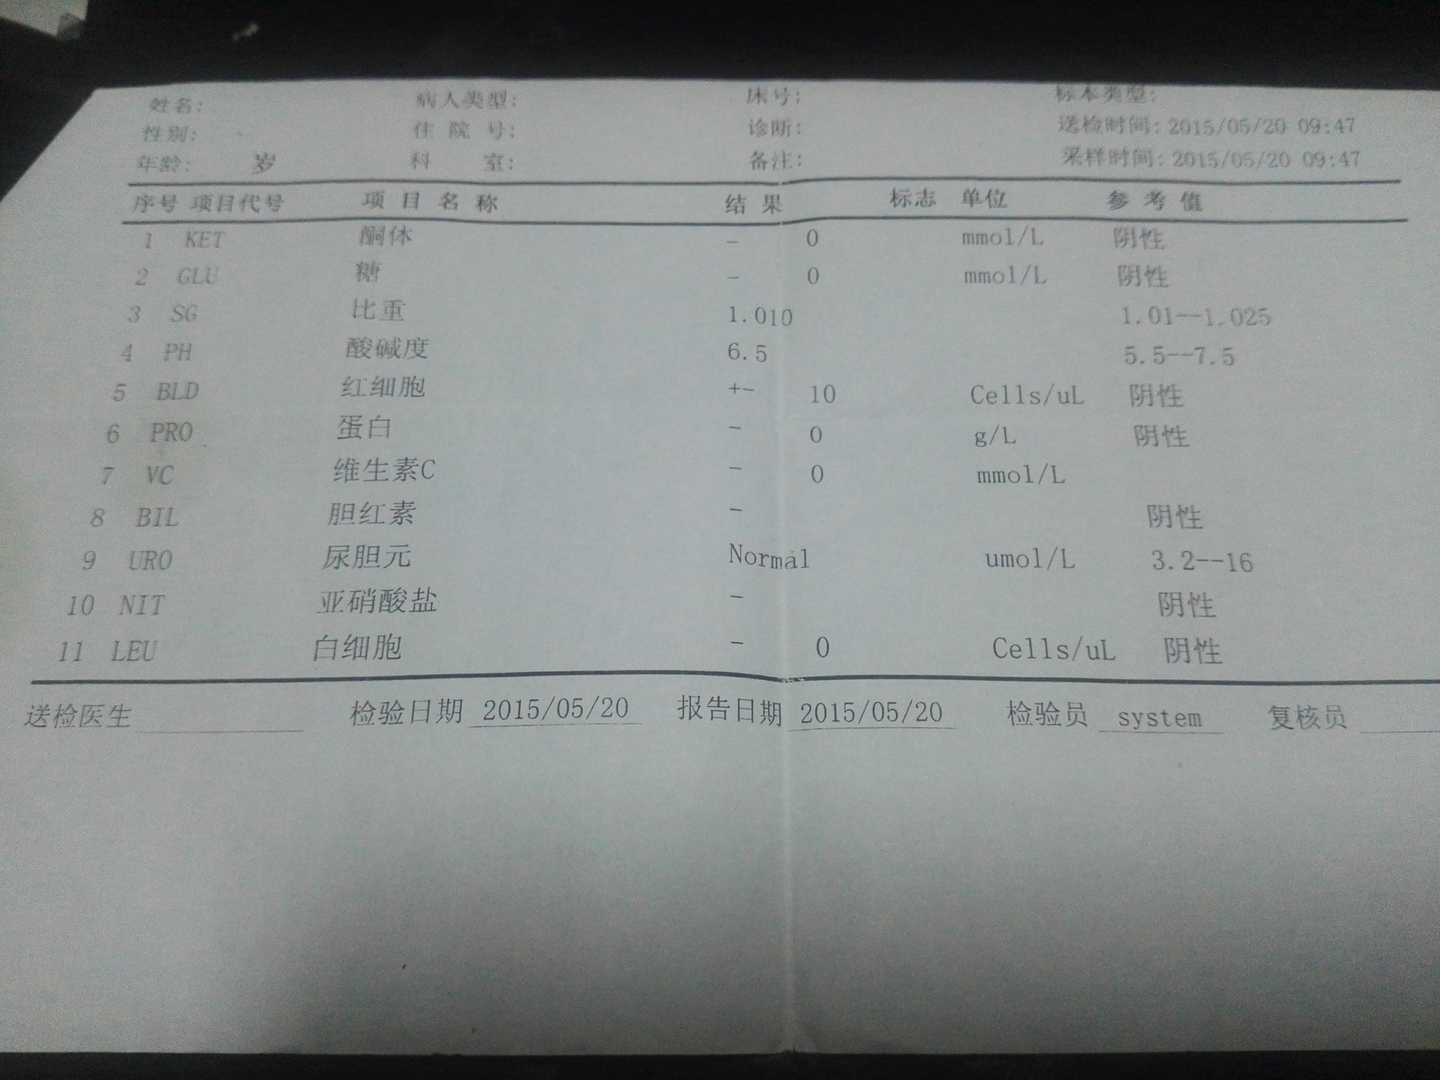 姓名: 病人类型: 床号: 标本类型:
性别: 住院号: 诊断: 送检时间: 2015/05/20 09:47
年龄: 岁 科室: 备注: 采样时间: 2015/05/20 09:47
序号 项目代号 项目名称 结果 标志 单位 参考值
1 KET 酮体 - 0 mmol/L 阴性
2 GLU 糖 - 0 mmol/L 阴性
3 SG 比重 1.010 1.01--1.025
4 PH 酸碱度 6.5 5.5--7.5
5 BLD 红细胞 +- 10 Cells/uL 阴性
6 PRO 蛋白 - 0 g/L 阴性
7 VC 维生素C - 0 mmol/L
8 BIL 胆红素 - 阴性
9 URO 尿胆元 Normal umol/L 3.2--16
10 NIT 亚硝酸盐 - 阴性
11 LEU 白细胞 - 0 Cells/uL 阴性
送检医生 检验日期 2015/05/20 报告日期 2015/05/20 检验员 system 复核员